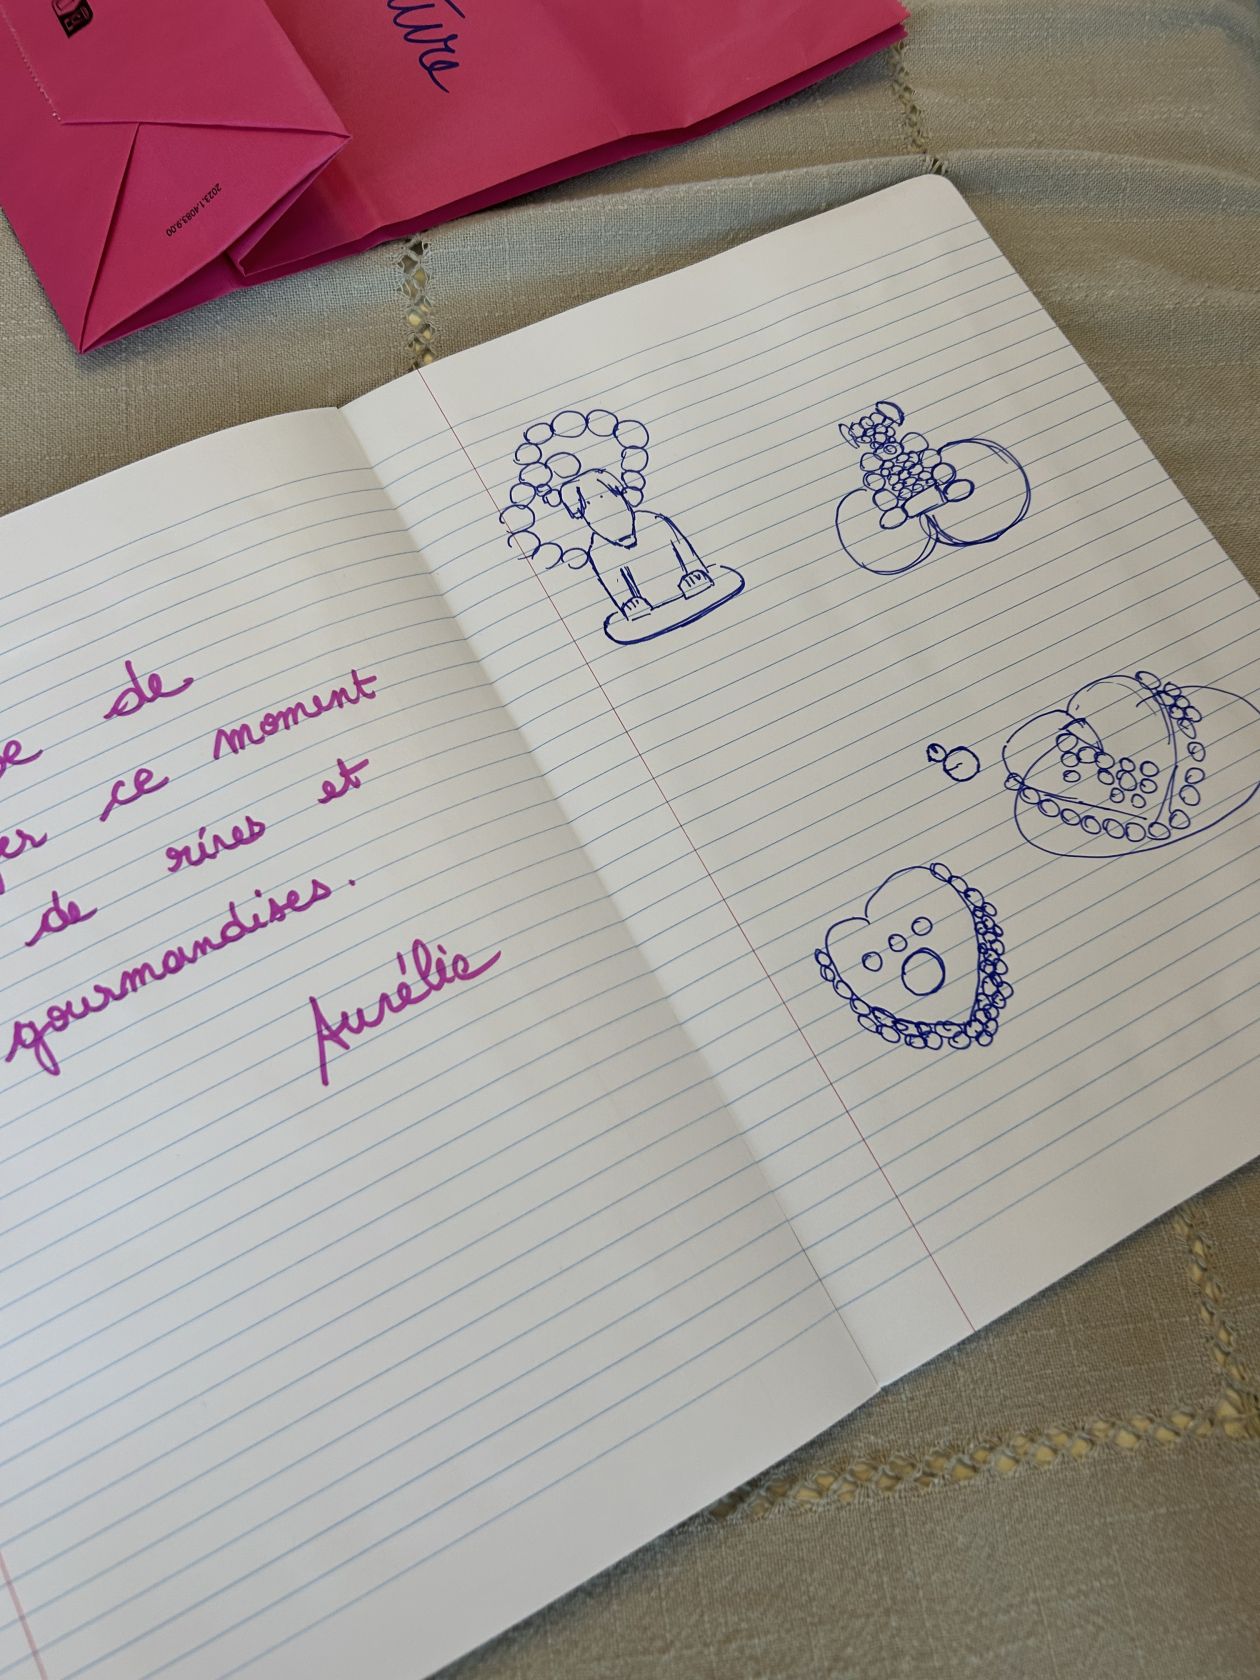 ture
2023.1.4083.9.00
de
ce moment
de rires et
gourmandises.
Aurélie